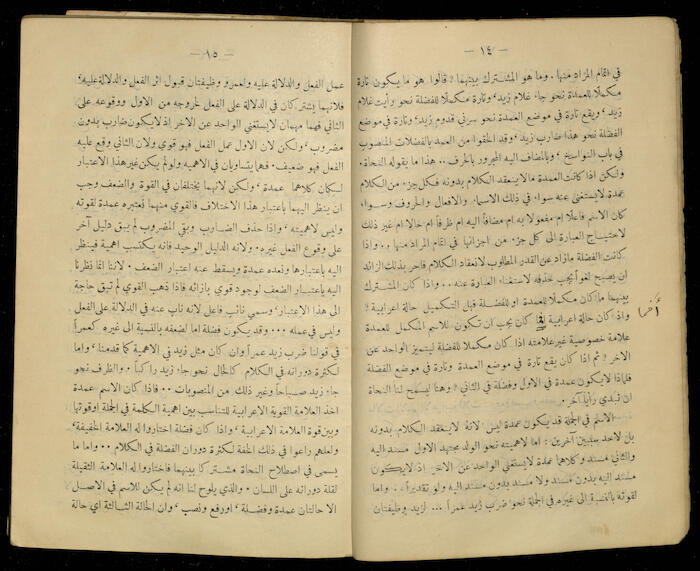 — ١٤ —
في اتمام المراد منها . وما هو المشترك بينهما ؟ قالوا هو ما يكون تارة
مكملًا للعمدة نحو جاء غلام زيد ، وتارة مكملًا للفضلة نحو رأيت غلام
زيد ، ويقع تارة في موضع العمدة نحو سرني قدوم زيد ، وتارة في موضع
الفضلة نحو هذا ضارب زيد ، وقد الحقوا من العمد بالفضلات المنصوب
في باب النواسخ ، وبالمضاف اليه المجرور بالحرف .. هذا ما يقوله النحاة .
ولكن اذا كانت العمدة ما لا ينعقد الكلام بدونه فكل جزء من الكلام
عمدة لا يستغنى عنه سواء في ذلك الاسماء والافعال والحروف وسواء
كان الاسم فاعلًا ام مفعولًا به ام مضافاً اليه ام ظرفاً ام حالًا ام غير ذلك
لاحتياج العبارة الى كل جزء من اجزائها في اتمام المراد منها .. واذا
كانت الفضلة ما زاد عن القدر المطلوب لانعقاد الكلام فاحر بذلك الزائد
ان يصبح لغواً يجب حذفه لاستغناء العبارة عنه .. واذا كان المشترك
بينهما ما كان مكملًا للعمدة او للفضلة قبل التكميل حالة اعرابية ؟
واذا كان حالة اعرابية كان يجب ان تكون للاسم المكمل للعمدة
علامة خصوصية غير علامته اذا كان مكملًا للفضلة ليتميز الواحد عن
الاخر ؟ ثم اذا كان يقع تارة في موضع العمدة وتارة في موضع الفضلة
فلماذا لا يكون عمدة في الاول وفضلة في الثاني ؟ وهنا يسمح لنا النحاة
ان نبدي رأياً آخر .
الاسم في الجملة قد يكون عمدة ليس لانه لا ينعقد الكلام بدونه
بل لاحد سببين آخرين : اما لاهميته نحو الولد مجتهد الاول مسند اليه
والثاني مسند وكلاهما عمدة لا يستغني الواحد عن الاخر اذ لا يكون
مسند اليه بدون مسند ولا مسند بدون مسند اليه ولو تقديراً .. واما
لقوته بالنسبة الى غيره في الجملة نحو ضرب زيد عمراً ... لزيد وظيفتان
أخما
— ١٥ —
عمل الفعل والدلالة عليه ولعمرو وظيفتان قبول اثر الفعل والدلالة عليه
فلانهما يشتركان في الدلالة على الفعل لخروجه من الاول ووقوعه على
الثاني فهما مهمان لا يستغني الواحد عن الاخر اذ لا يكون ضارب بدون
مضروب ، ولكن لان الاول عمل الفعل فهو قوي ولان الثاني وقع عليه
الفعل فهو ضعيف . فهما يتساويان في الاهمية ولو لم يكن غير هذا الاعتبار
لكان كلاهما عمدة ، ولكن لانهما يختلفان في القوة والضعف وجب
ان ينظر اليهما باعتبار هذا الاختلاف فالقوي منهما نعتبره عمدة لقوته
وليس لاهميته ، واذا حذف الضارب وبقي المضروب لم يبق دليل آخر
على وقوع الفعل غيره . ولانه الدليل الوحيد فانه يكتسب اهمية فينظر
اليه باعتبارها ونعده عمدة ويسقط عنه اعتبار الضعف . لاننا انما نظرنا
اليه باعتبار الضعف لوجود قوي بازائه فاذا ذهب القوي لم تبق حاجة
الى هذا الاعتبار ، وسمي نائب فاعل لانه ناب عنه في الدلالة على الفعل
وليس في عمله ... وقد يكون فضلة اما لضعفه بالنسبة الى غيره كعمراً
في قولنا ضرب زيد عمراً وان كان مثل زيد في الاهمية كما قدمنا ، واما
لكثرة دورانه في الكلام كالحال نحو جاء زيد راكباً ، والظرف نحو
جاء زيد صباحاً وغير ذلك من المنصوبات .. فاذا كان الاسم عمدة
اخذ العلامة القوية الاعرابية للتناسب بين اهمية الكلمة في الجملة او قوتها
وبين قوة العلامة الاعرابية ، واذا كان فضلة اختاروا له العلامة الخفيفة ،
ولعلهم راعوا في ذلك الخفة لكثرة دوران الفضلة في الكلام .. واما ما
يسمى في اصطلاح النحاة مشتركا بينهما فاختاروا له العلامة الثقيلة
لقلة دورانه على اللسان . والذي يلوح لنا انه لم يكن للاسم في الاصل
الا حالتان عمدة وفضلة ، او رفع ونصب ، وان الحالة الثالثة اي حالة